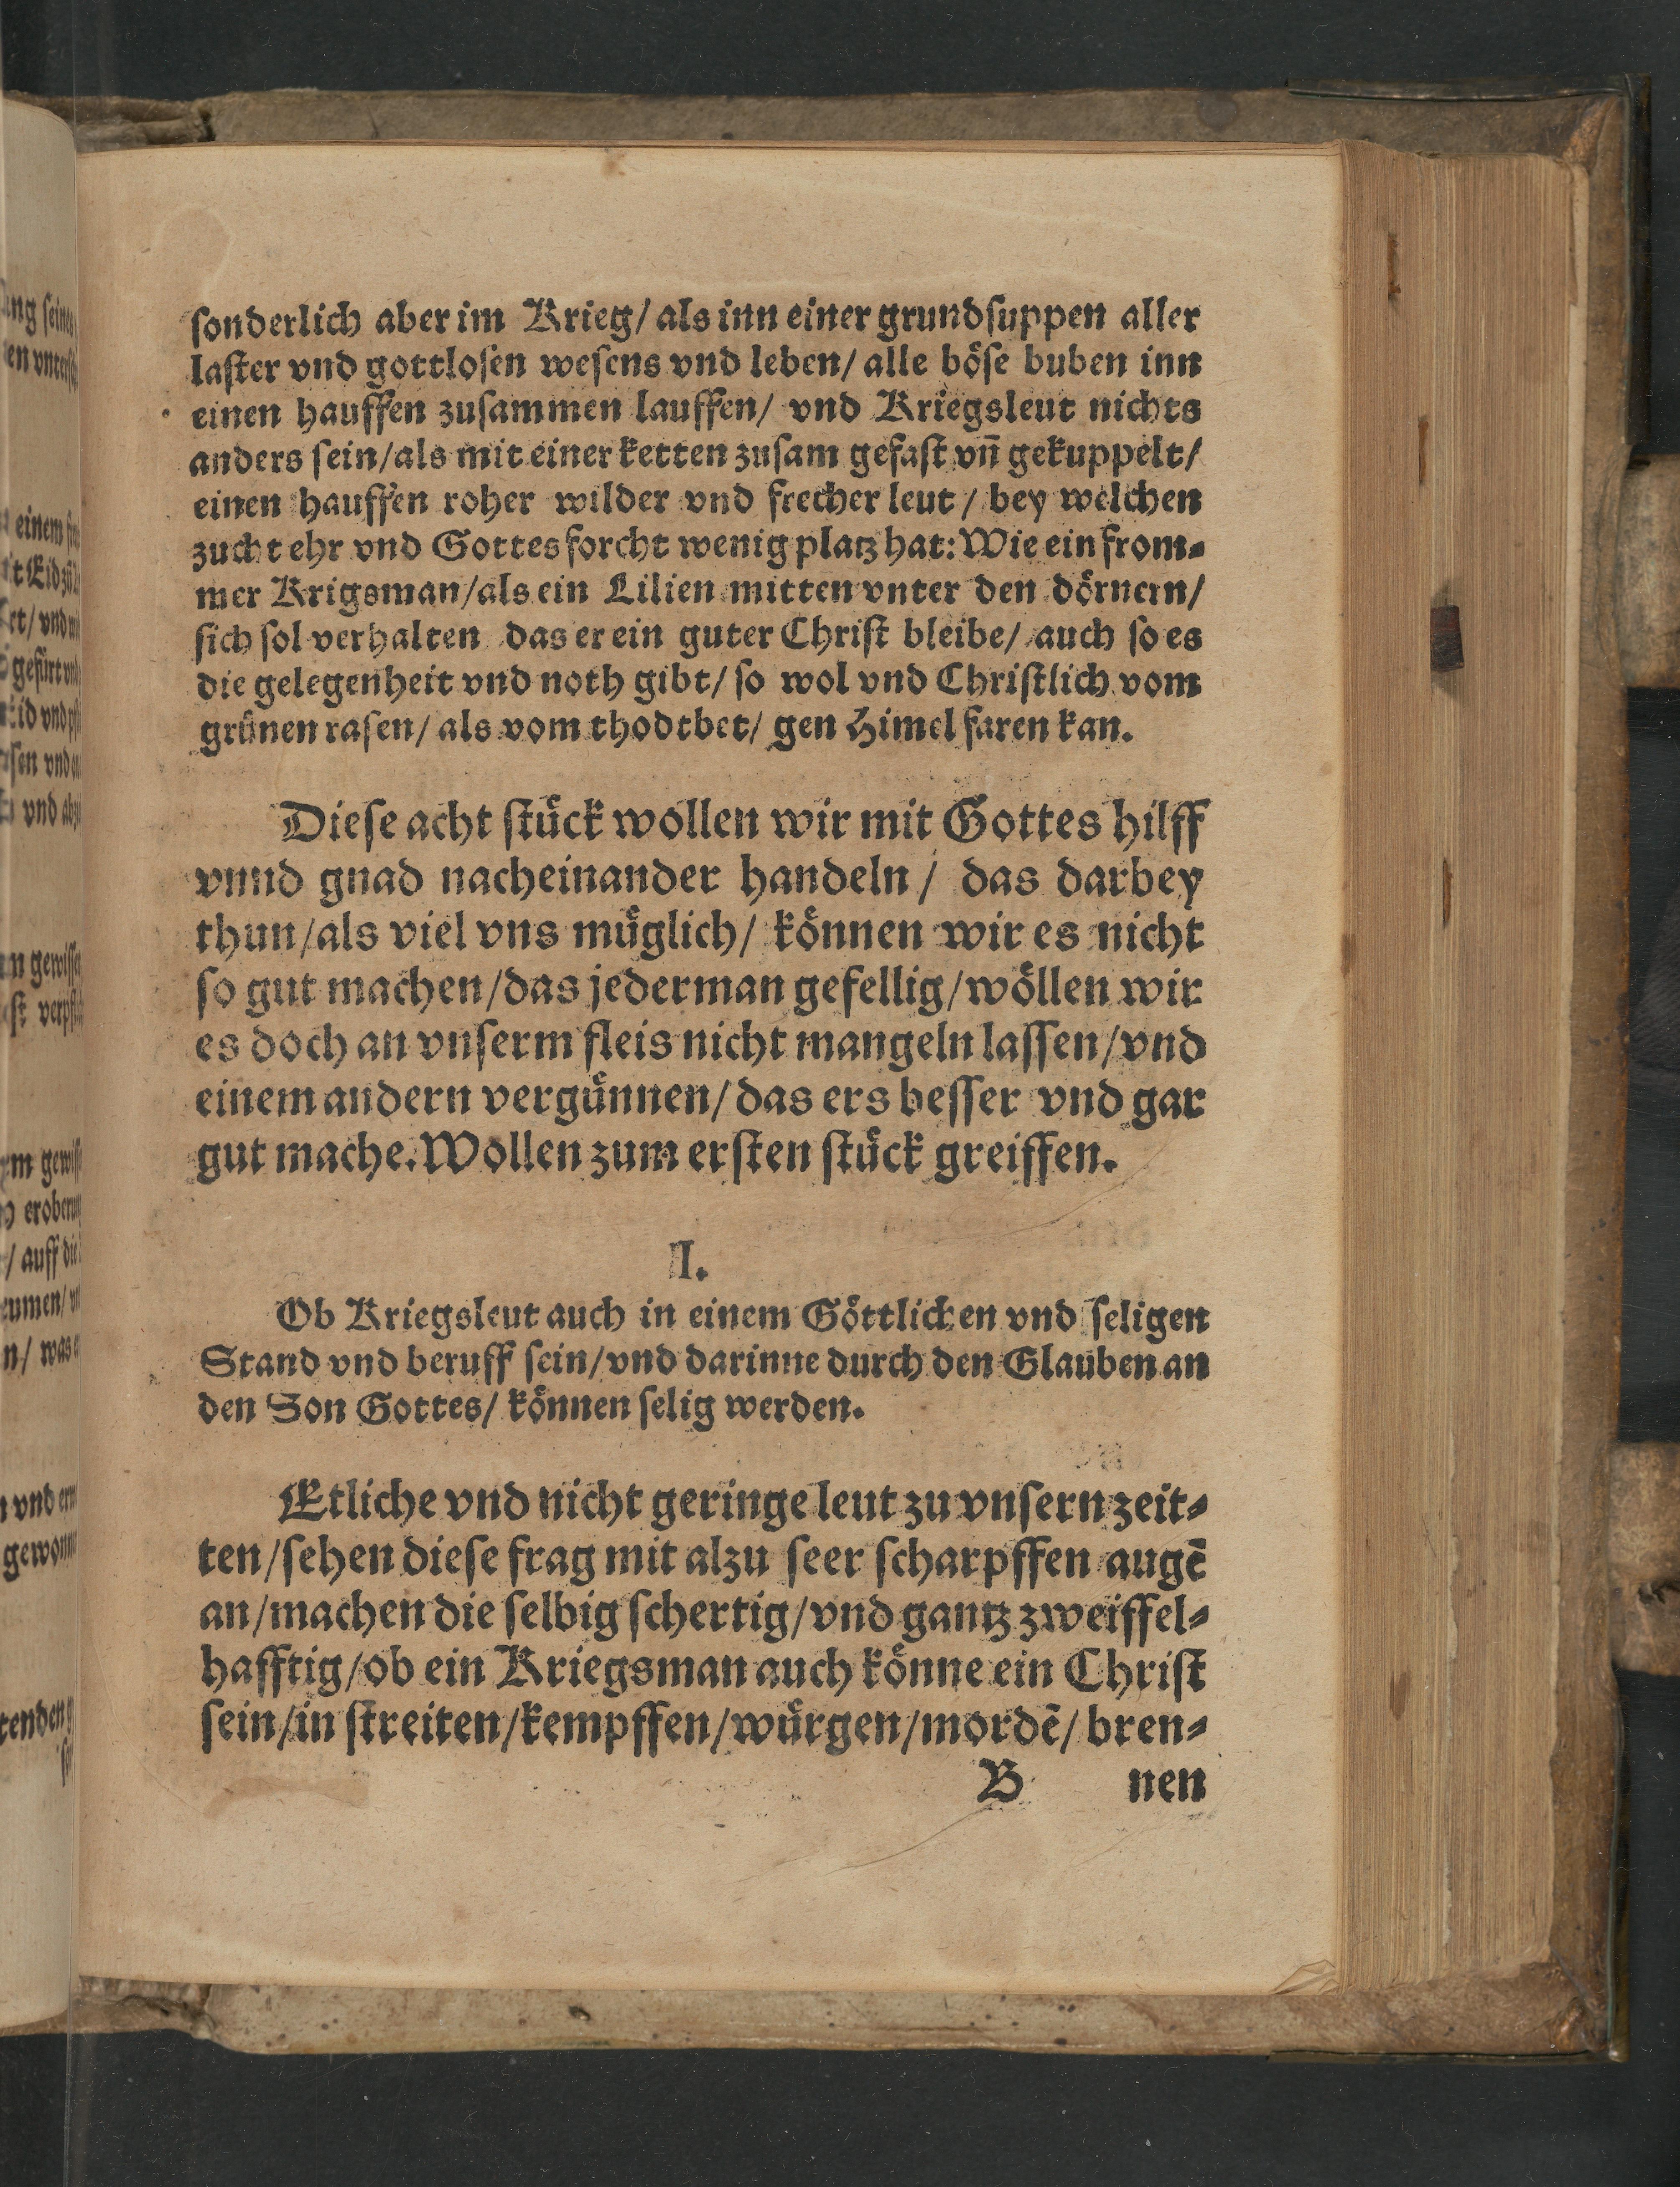 sonderlich aber im Krieg/ als inn einer grundsuppen aller
laster vnd gottlosen wesens vnd leben/ alle böse buben inn
einen hauffen zusammen lauffen/ vnd Kriegsleut nichts
anders sein/als mit einer ketten zusam gefast vñ gekuppelt/
einen hauffen roher wilder vnd frecher leut / bey welchen
zucht ehr vnd Gottes forcht wenig platz hat: Wie ein from⸗
mer Krigsman/als ein Lilien mitten vnter den dörnern/
sich sol verhalten das er ein guter Christ bleibe/ auch so es
die gelegenheit vnd noth gibt/ so wol vnd Christlich vom
grünen rasen/ als vom thodtbet/ gen Himel faren kan.
Diese acht stück wollen wir mit Gottes hilff
vnnd gnad nacheinander handeln / das darbey
thun/als viel vns müglich/ können wir es nicht
so gut machen/das jederman gefellig/wöllen wir
es doch an vnserm fleis nicht mangeln lassen/vnd
einem andern vergünnen/das ers besser vnd gar
gut mache. Wollen zum ersten stück greiffen.
I.
Ob Kriegsleut auch in einem Göttlichen vnd seligen
Stand vnd beruff sein/vnd darinne durch den Glauben an
den Son Gottes/ können selig werden.
Etliche vnd nicht geringe leut zu vnsern zeit⸗
ten/sehen diese frag mit alzu seer scharpffen augē
an/machen die selbig schertig/vnd gantz zweiffel⸗
hafftig/ob ein Kriegsman auch könne ein Christ
sein/in streiten/kempffen/würgen/mordē/ bren⸗
B nen